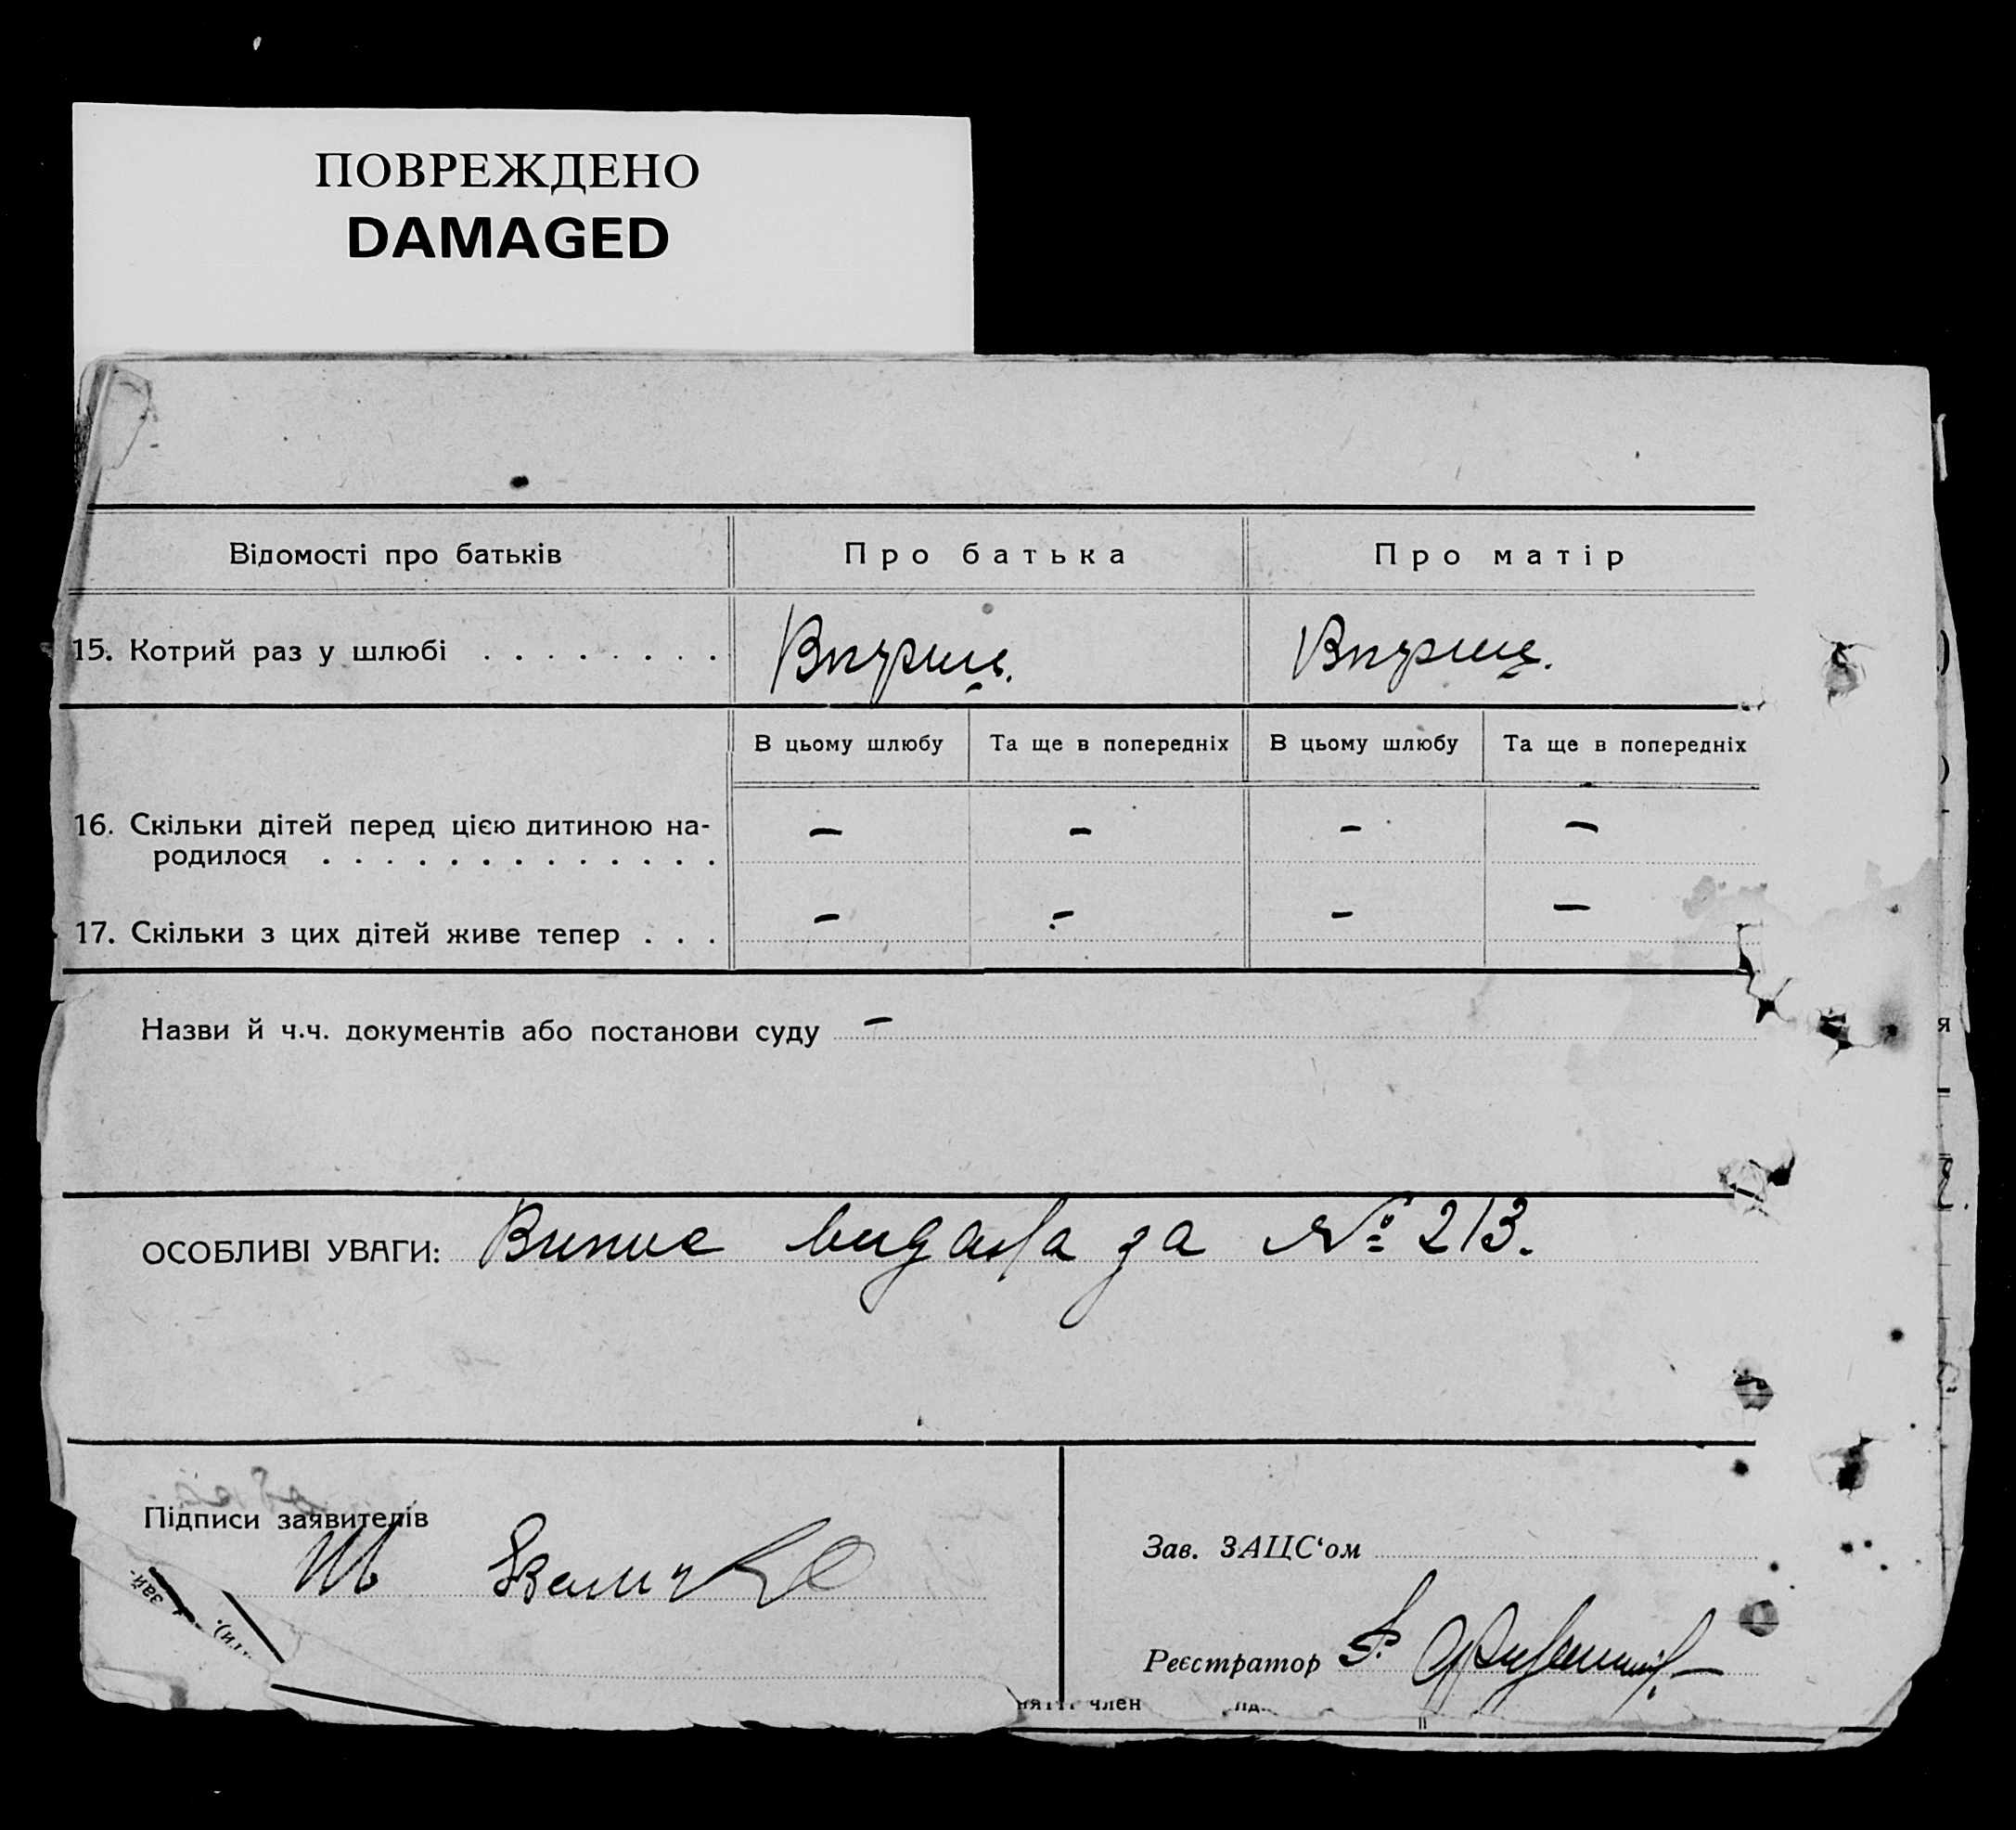 ПОВРЕЖДЕНО
DAMAGED
Відомості про батьків
Про батька
Про матір
15. Котрий раз у шлюбі . . . . . . . .
Вперше.
Вперше.
В цьому шлюбу
Та ще в попередніх
В цьому шлюбу
Та ще в попередніх
16. Скільки дітей перед цією дитиною на-
родилося . . . . . . . . . . . . .
– – – –
17. Скільки з цих дітей живе тепер . . .
– – – –
Назви й ч.ч. документів або постанови суду –
ОСОБЛИВІ УВАГИ: Випис видала за № 213.
Підписи заявителів
Зав. ЗАЦС‘ом
Реєстратор
зай-
ти).
член